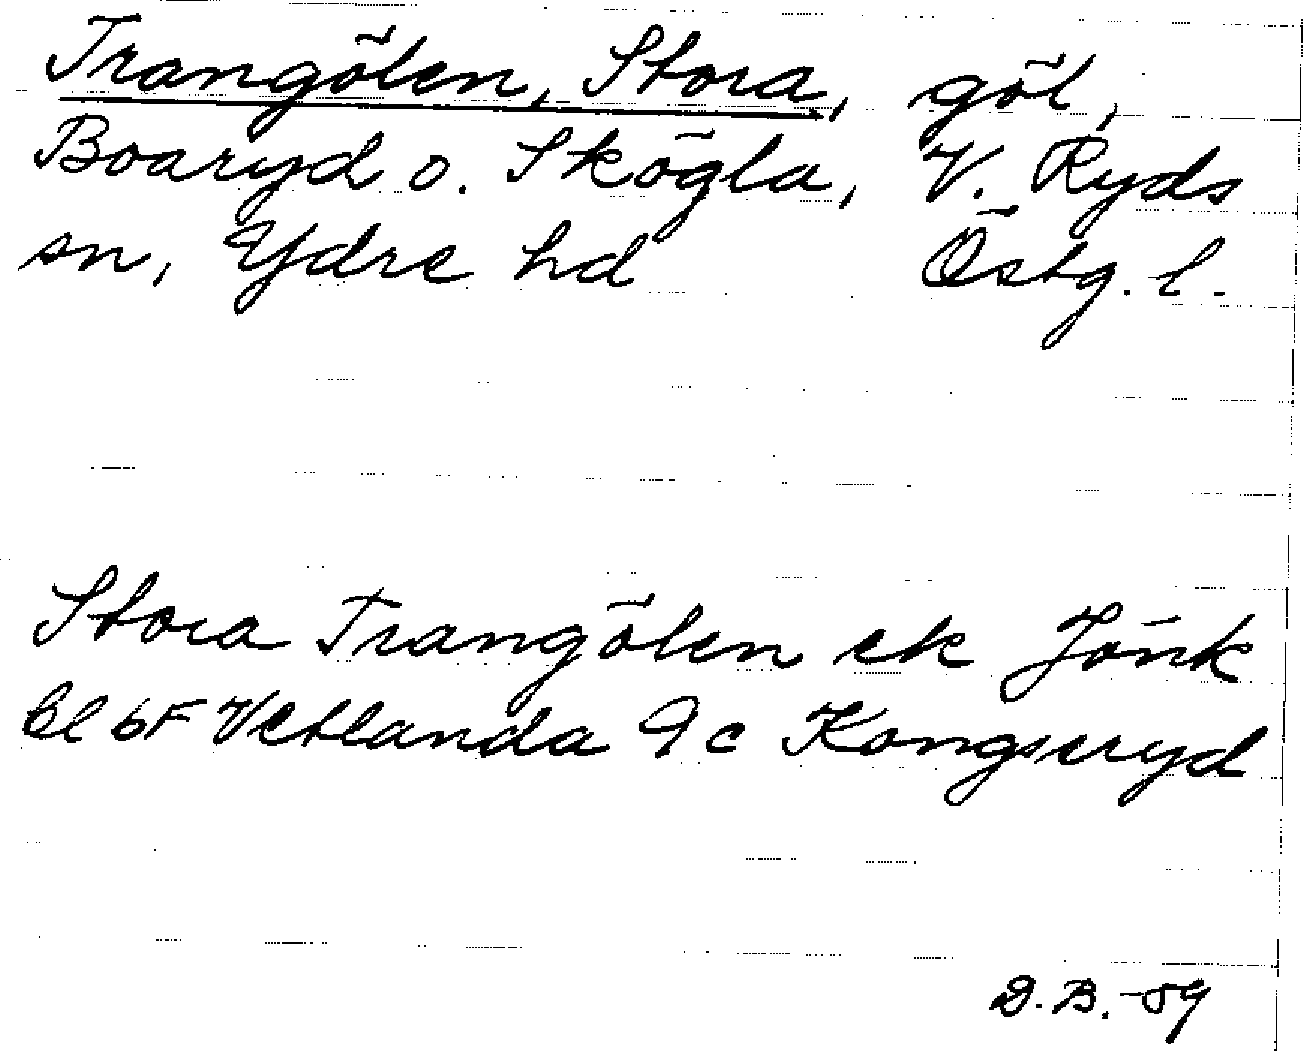 Trangölen, Stora, göl,
Boaryd o. Skögla, V. Ryds
sn, Ydre hd Östg. l.
Stora Trangölen ek Jönk
bl 6F Vetlanda 9c Kongseryd
D.B.-59